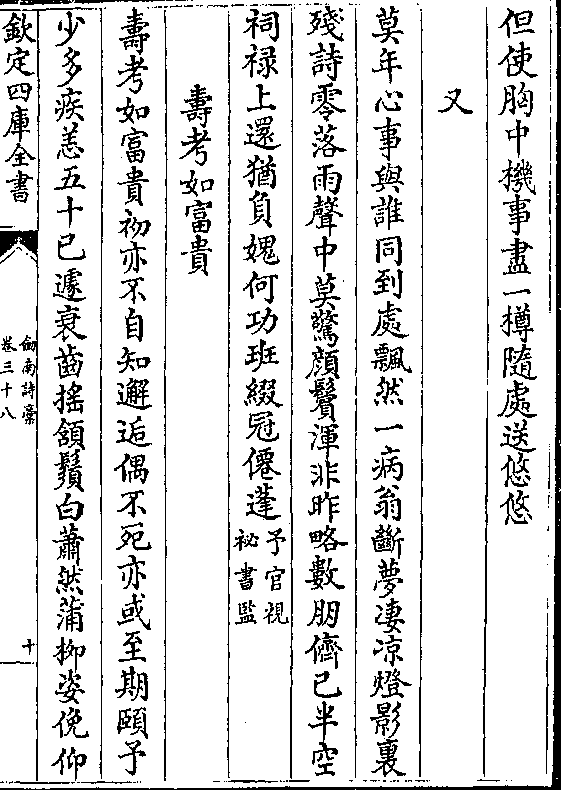 但使胸中機事盡一樽隨處送悠悠
又
莫年心事與誰同到處飄然一病翁斷夢凄凉燈影裏
殘詩零落雨聲中莫驚顔鬢渾非昨略數朋儕已半空
祠禄上還猶負媿何功班綴冠僊蓬予官視祕書監
壽考如富貴
壽考如富貴初亦不自知邂逅偶不死亦或至期頤予
少多疾恙五十已遽衰齒揺頷鬚白蕭然蒲柳姿俛仰
欽定四庫全書
劍南詩藁
卷三十八
十